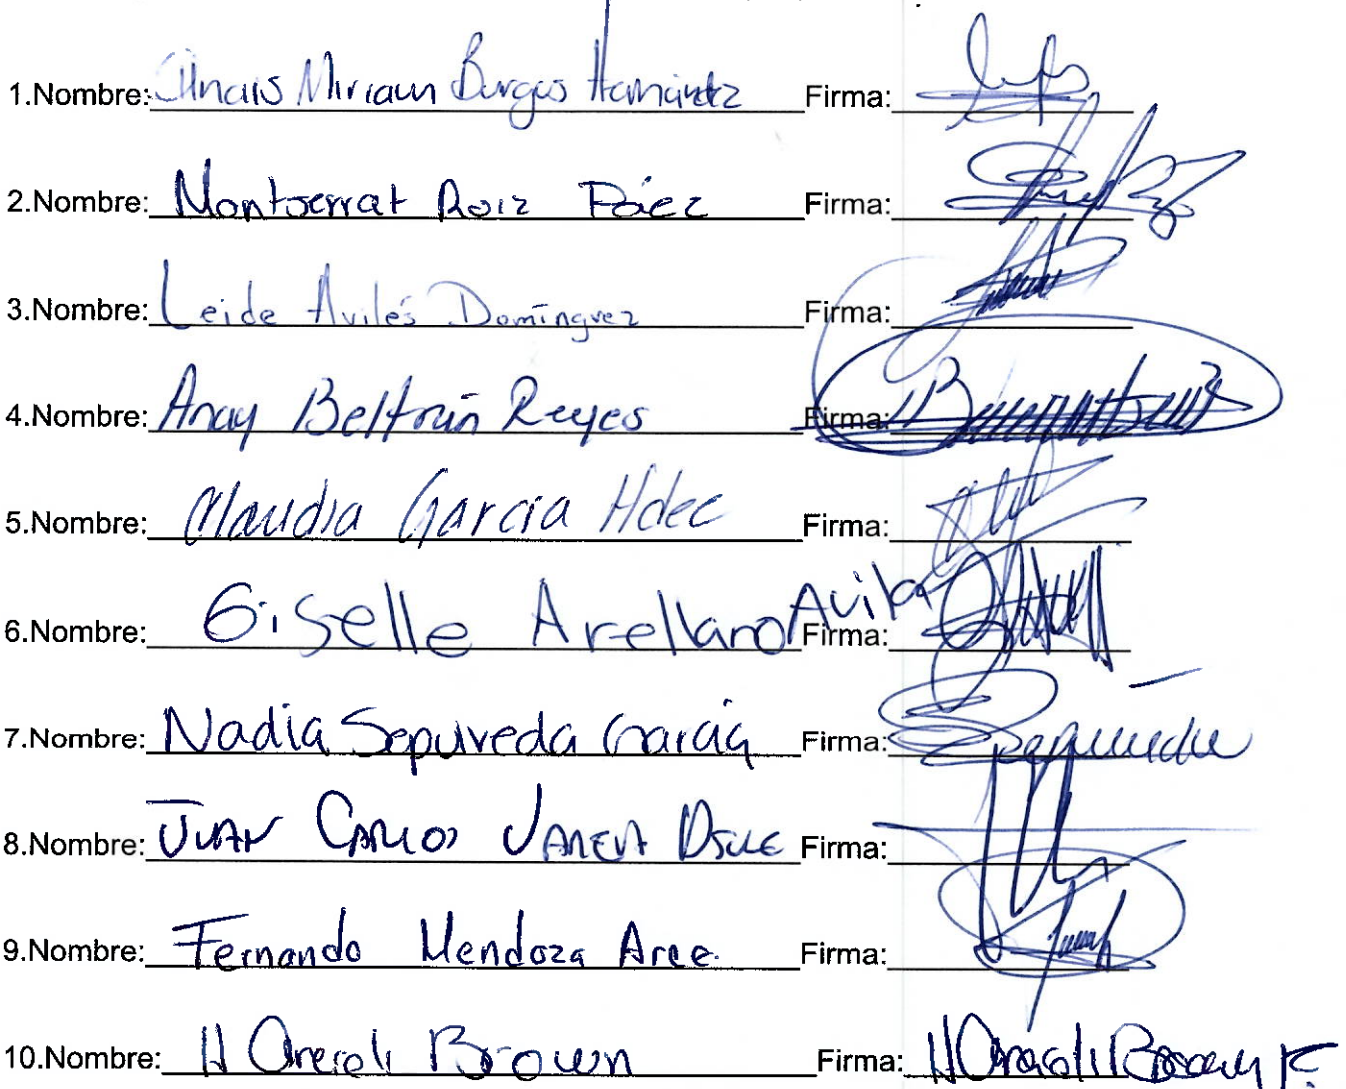 1.Nombre: Anais Miriam Burgos Hernández Firma:
2.Nombre: Montserrat Roiz Páez Firma:
3.Nombre: Leide Avilés Domínguez Firma:
4.Nombre: Anay Beltrán Reyes Firma:
5.Nombre: Claudia García Hdez Firma:
6.Nombre: Giselle Arellano Avila Firma:
7.Nombre: Nadia Sepulveda García Firma:
8.Nombre: JUAN CARLOS Firma:
9.Nombre: Fernando Mendoza Arce. Firma:
10.Nombre: H Areceli Brown Firma: H Araceli Brown K.